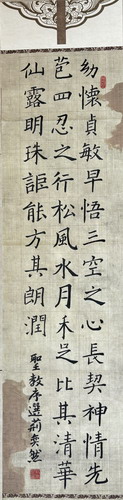 幼懷貞敏早悟三空之心長契神情先
苞四忍之行松風水月未足比其清華
仙露明珠詎能方其朗潤
聖教序選 奕然